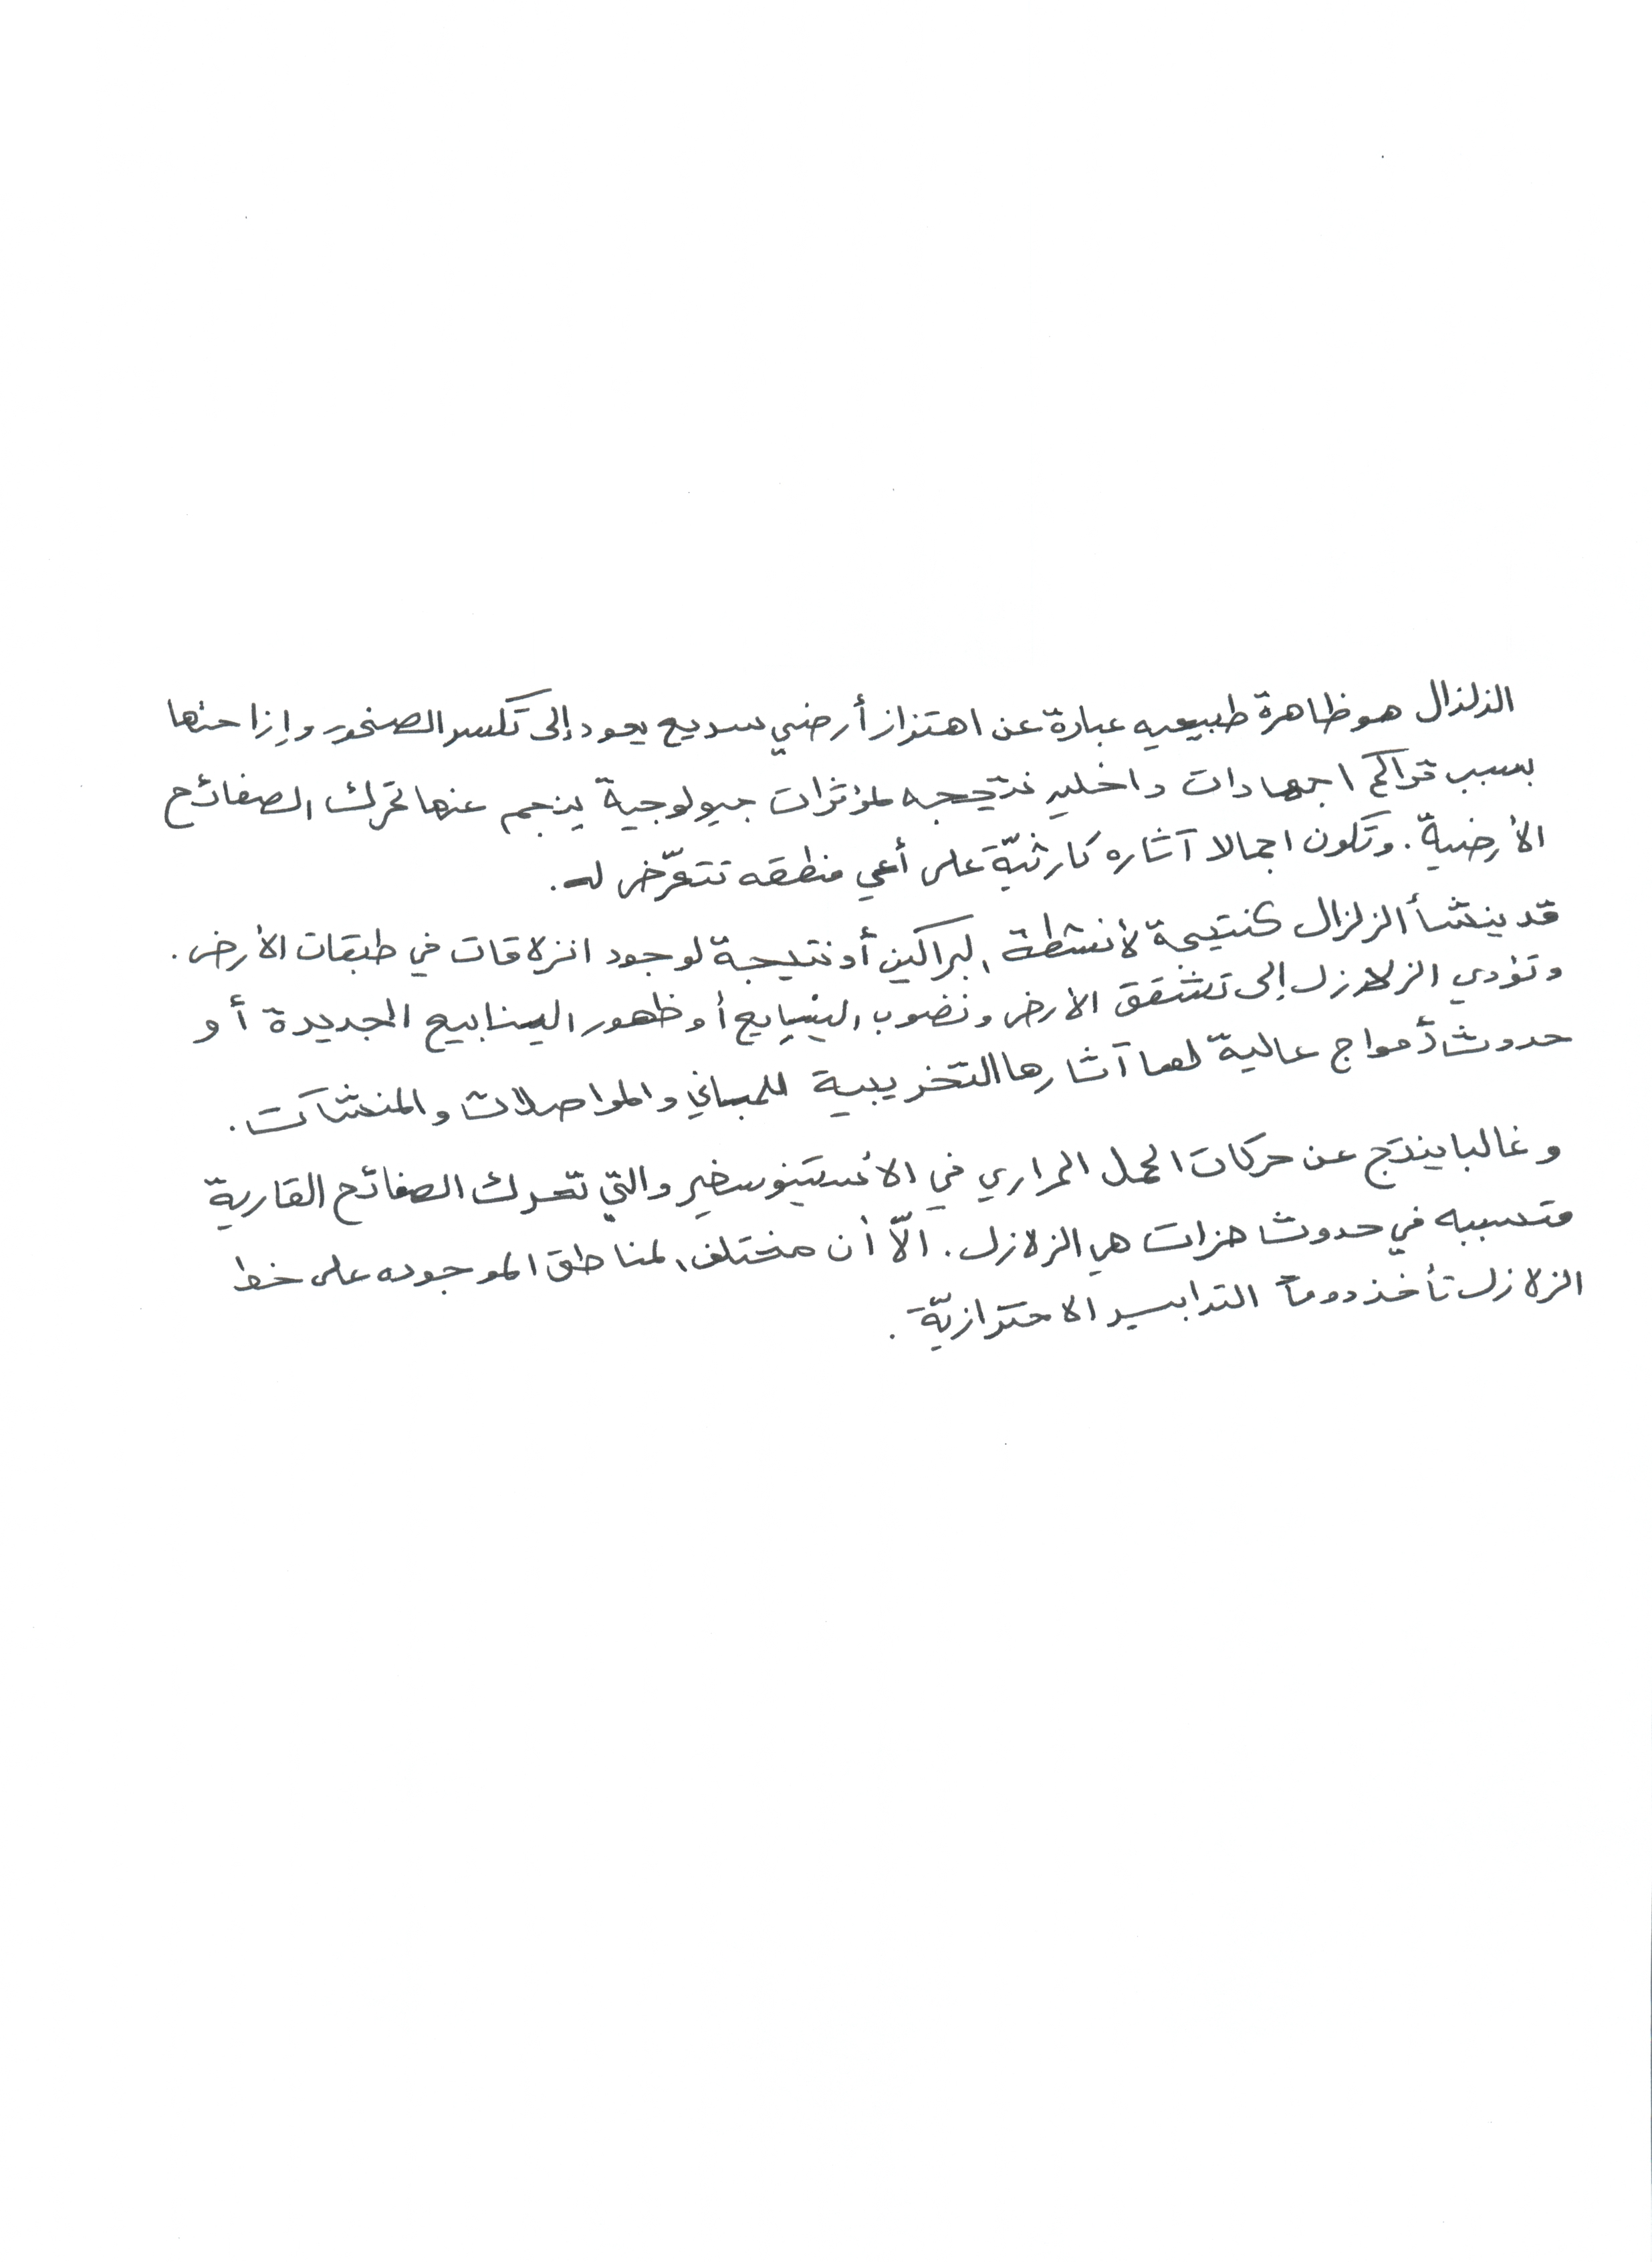 الزلزال هو ظاهرة طبيعيه عبارة عن اهتزاز أرضي سريع يعود إلى تكسر الصخور وإزاحتها
بسبب تراكم اجهادات داخليه نتيجه لمؤثرات جيولوجية ينجم عنها تحرك الصفائح
الأرضية. وتكون اجمالا آثاره كارثيّة على أي منطقه تتعرّض له.
قد ينشأ الزلزال كنتيجة لأنشطة البراكين أو نتيجة لوجود انزلاقات في طبقات الأرض.
وتؤدي الزلازل إلى تشقق الأرض ونضوب الينابيع أو ظهور الينابيع الجديدة أو
حدوث أمواج عالية لها آثارها التخريبية للمباني والمواصلات والمنشآت.
وغالبا ينتج عن حركات الحمل الحراري في الأستينوسفير والتي تحرك الصفائح القارية
متسببه في حدوث هزات هي الزلازل. الّا أن مختلف المناطق الموجوده على خط
الزلازل تأخذ دوماً التدابير الاحترازيّة.